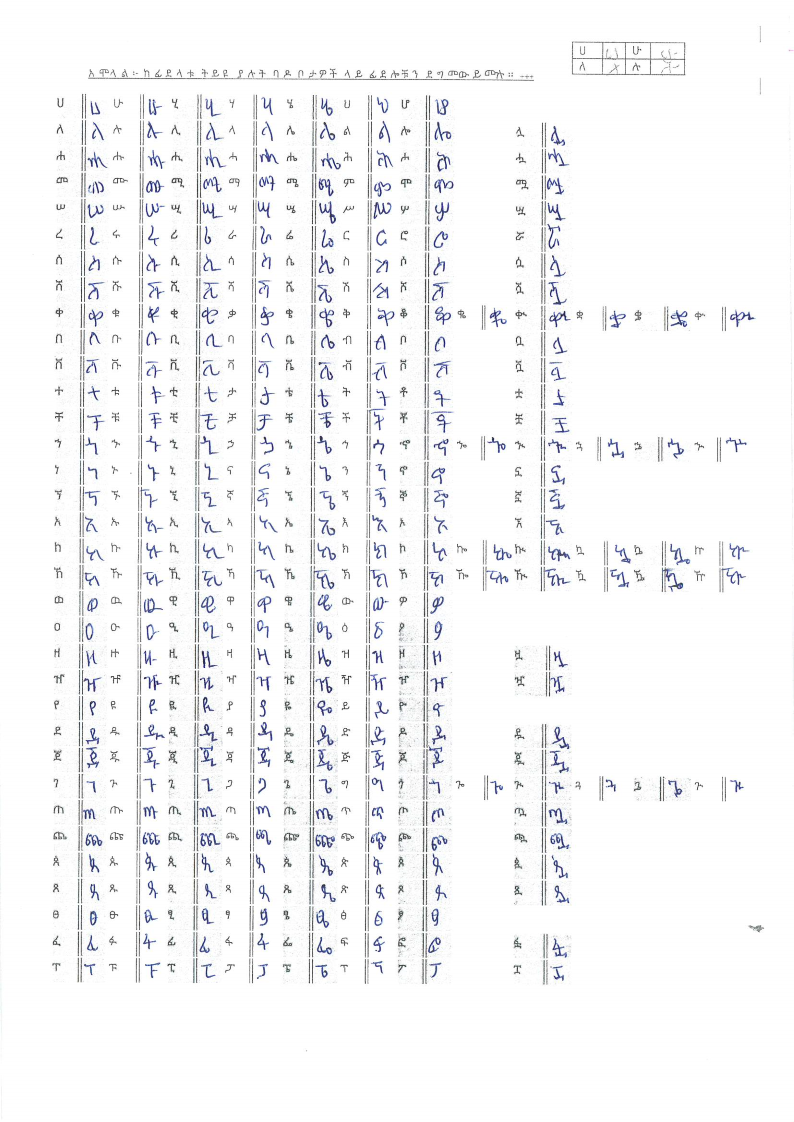 ሀ ሀ ሁ ሁ
ለ ለ ሉ ሉ
አሞላል፡- ከፊደላቱ ትይዩ ያሉት ባዶ ቦታዎች ላይ ፊደሎቹን ደግመው ይሙሉ። ---
ሀ ሀ ሁ ሁ ሂ ሂ ሃ ሃ ሄ ሄ ህ ህ ሆ ሆ
ለ ለ ሉ ሉ ሊ ሊ ላ ላ ሌ ሌ ል ል ሎ ሎ ሏ ሏ
ሐ ሐ ሑ ሑ ሒ ሒ ሓ ሓ ሔ ሔ ሕ ሕ ሖ ሖ ሗ ሗ
መ መ ሙ ሙ ሚ ሚ ማ ማ ሜ ሜ ም ም ሞ ሞ ሟ ሟ
ሠ ሠ ሡ ሡ ሢ ሢ ሣ ሣ ሤ ሤ ሥ ሥ ሦ ሦ ሧ ሧ
ረ ረ ሩ ሩ ሪ ሪ ራ ራ ሬ ሬ ር ር ሮ ሮ ሯ ሯ
ሰ ሰ ሱ ሱ ሲ ሲ ሳ ሳ ሴ ሴ ስ ስ ሶ ሶ ሷ ሷ
ሸ ሸ ሹ ሹ ሺ ሺ ሻ ሻ ሼ ሼ ሽ ሽ ሾ ሾ ሿ ሿ
ቀ ቀ ቁ ቁ ቂ ቂ ቃ ቃ ቄ ቄ ቅ ቅ ቆ ቆ ቈ ቈ ቊ ቊ ቋ ቋ ቌ ቌ ቍ ቍ
በ በ ቡ ቡ ቢ ቢ ባ ባ ቤ ቤ ብ ብ ቦ ቦ ቧ ቧ
ቨ ቨ ቩ ቩ ቪ ቪ ቫ ቫ ቬ ቬ ቭ ቭ ቮ ቮ ቯ ቯ
ተ ተ ቱ ቱ ቲ ቲ ታ ታ ቴ ቴ ት ት ቶ ቶ ቷ ቷ
ቸ ቸ ቹ ቹ ቺ ቺ ቻ ቻ ቼ ቼ ች ች ቾ ቾ ቿ ቿ
ኀ ኀ ኁ ኁ ኂ ኂ ኃ ኃ ኄ ኄ ኅ ኅ ኆ ኆ ኈ ኈ ኊ ኊ ኋ ኋ ኌ ኌ ኍ ኍ
ነ ነ ኑ ኑ ኒ ኒ ና ና ኔ ኔ ን ን ኖ ኖ ኗ ኗ
ኘ ኘ ኙ ኙ ኚ ኚ ኛ ኛ ኜ ኜ ኝ ኝ ኞ ኞ ኟ ኟ
አ አ ኡ ኡ ኢ ኢ ኣ ኣ ኤ ኤ እ እ ኦ ኦ ኧ ኧ
ከ ከ ኩ ኩ ኪ ኪ ካ ካ ኬ ኬ ክ ክ ኮ ኮ ኰ ኰ ኲ ኲ ኳ ኳ ኴ ኴ ኵ ኵ
ኸ ኸ ኹ ኹ ኺ ኺ ኻ ኻ ኼ ኼ ኽ ኽ ኾ ኾ ዀ ዀ ዂ ዂ ዃ ዃ ዄ ዄ ዅ ዅ
ወ ወ ዉ ዉ ዊ ዊ ዋ ዋ ዌ ዌ ው ው ዎ ዎ
ዐ ዐ ዑ ዑ ዒ ዒ ዓ ዓ ዔ ዔ ዕ ዕ ዖ ዖ
ዘ ዘ ዙ ዙ ዚ ዚ ዛ ዛ ዜ ዜ ዝ ዝ ዞ ዞ ዟ ዟ
ዠ ዠ ዡ ዡ ዢ ዢ ዣ ዣ ዤ ዤ ዥ ዥ ዦ ዦ ዧ ዧ
የ የ ዩ ዩ ዪ ዪ ያ ያ ዬ ዬ ይ ይ ዮ ዮ
ደ ደ ዱ ዱ ዲ ዲ ዳ ዳ ዴ ዴ ድ ድ ዶ ዶ ዷ ዷ
ጀ ጀ ጁ ጁ ጂ ጂ ጃ ጃ ጄ ጄ ጅ ጅ ጆ ጆ ጇ ጇ
ገ ገ ጉ ጉ ጊ ጊ ጋ ጋ ጌ ጌ ግ ግ ጎ ጎ ጐ ጐ ጒ ጒ ጓ ጓ ጔ ጔ ጕ ጕ
ጠ ጠ ጡ ጡ ጢ ጢ ጣ ጣ ጤ ጤ ጥ ጥ ጦ ጦ ጧ ጧ
ጨ ጨ ጩ ጩ ጪ ጪ ጫ ጫ ጬ ጬ ጭ ጭ ጮ ጮ ጯ ጯ
ጰ ጰ ጱ ጱ ጲ ጲ ጳ ጳ ጴ ጴ ጵ ጵ ጶ ጶ ጷ ጷ
ጸ ጸ ጹ ጹ ጺ ጺ ጻ ጻ ጼ ጼ ጽ ጽ ጾ ጾ ጿ ጿ
ፀ ፀ ፁ ፁ ፂ ፂ ፃ ፃ ፄ ፄ ፅ ፅ ፆ ፆ
ፈ ፈ ፉ ፉ ፊ ፊ ፋ ፋ ፌ ፌ ፍ ፍ ፎ ፎ ፏ ፏ
ፐ ፐ ፑ ፑ ፒ ፒ ፓ ፓ ፔ ፔ ፕ ፕ ፖ ፖ ፗ ፗ